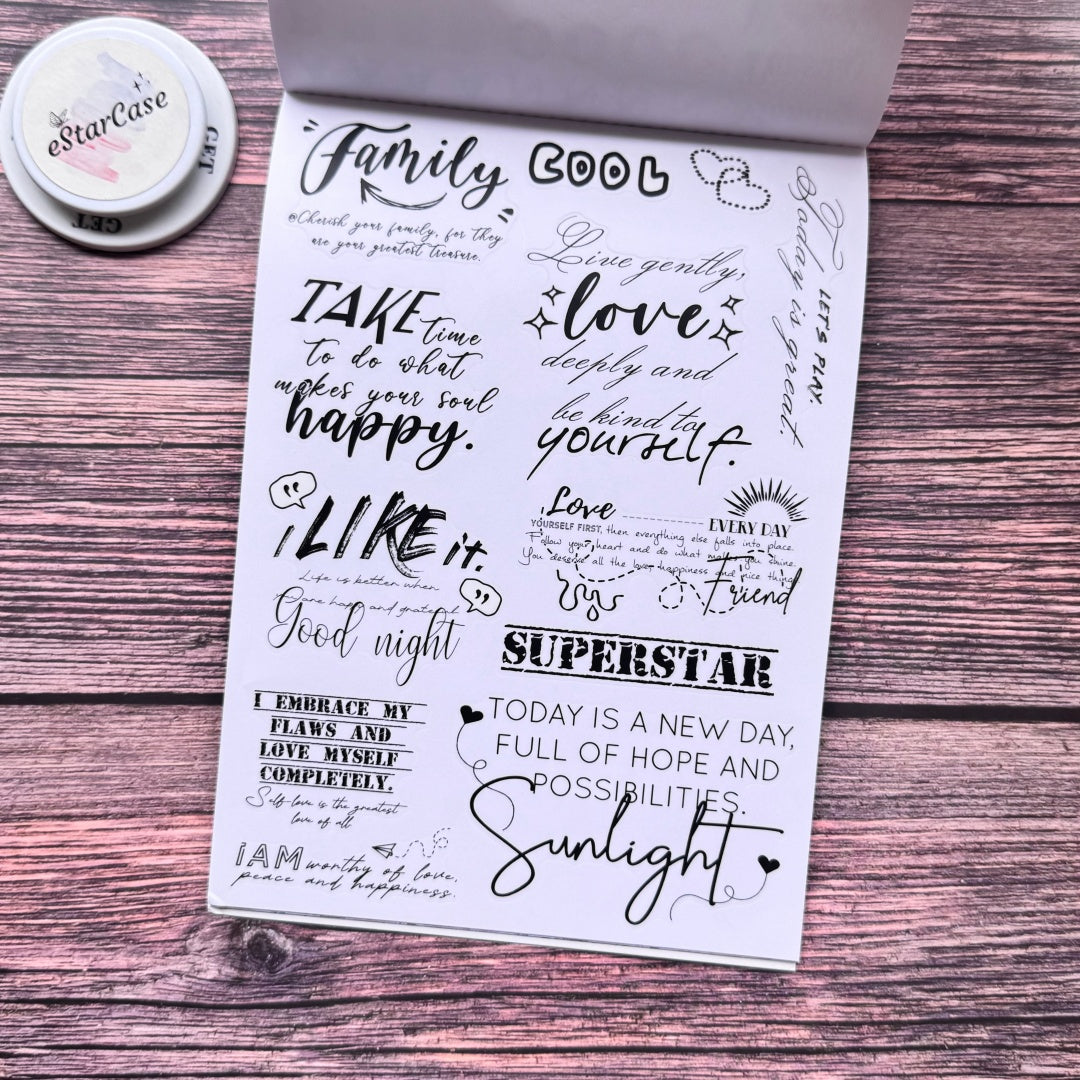 eStarCase
GET
GET
Family
COOL
@Cherish your family, for they
are your greatest treasure.
Today is great.
LET'S PLAY.
Live gently,
love
deeply and
be kind to
yourself.
TAKE time
to do what
makes your soul
happy.
i LIKE it.
Life is better when
Good night
Love
EVERY DAY
YOURSELF FIRST, then everything else falls into place.
Follow your heart and do what makes you shine.
You deserve all the love, happiness and nice things
Friend
SUPERSTAR
I EMBRACE MY
FLAWS AND
LOVE MYSELF
COMPLETELY.
Self-love is the greatest
love of all
TODAY IS A NEW DAY,
FULL OF HOPE AND
POSSIBILITIES.
Sunlight
iAM worthy of love,
peace and happiness.